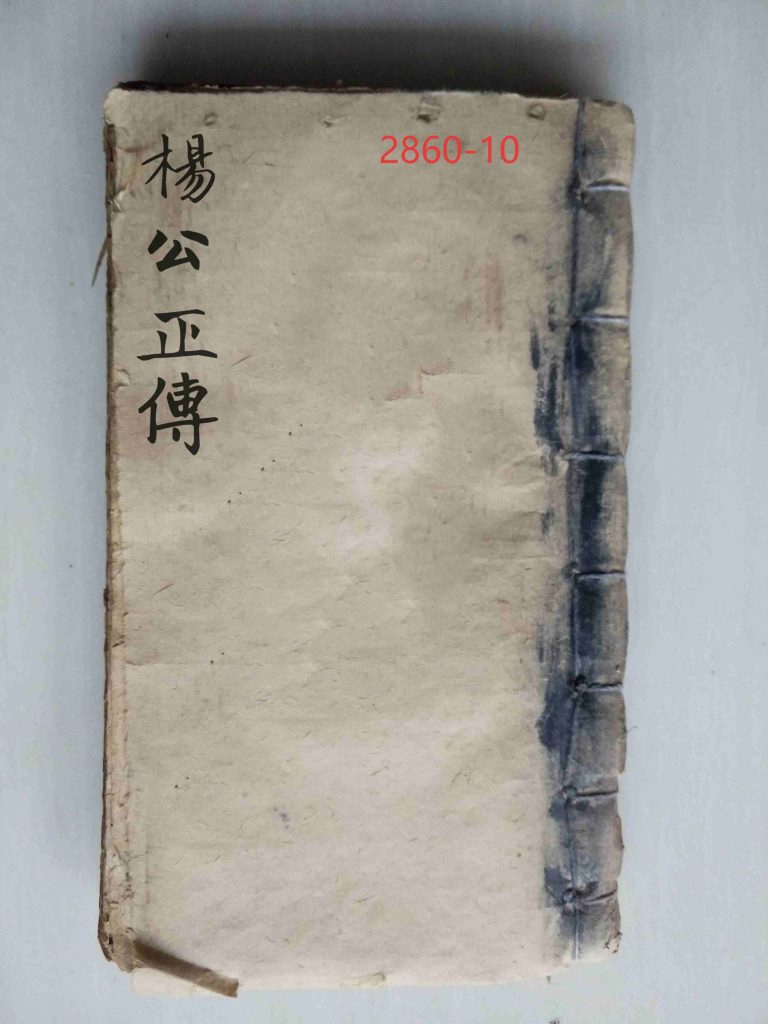 楊公正傳
2860-10